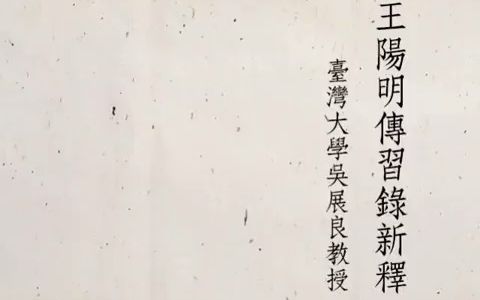 王陽明傳習錄新釋
臺灣大學吳展良教授